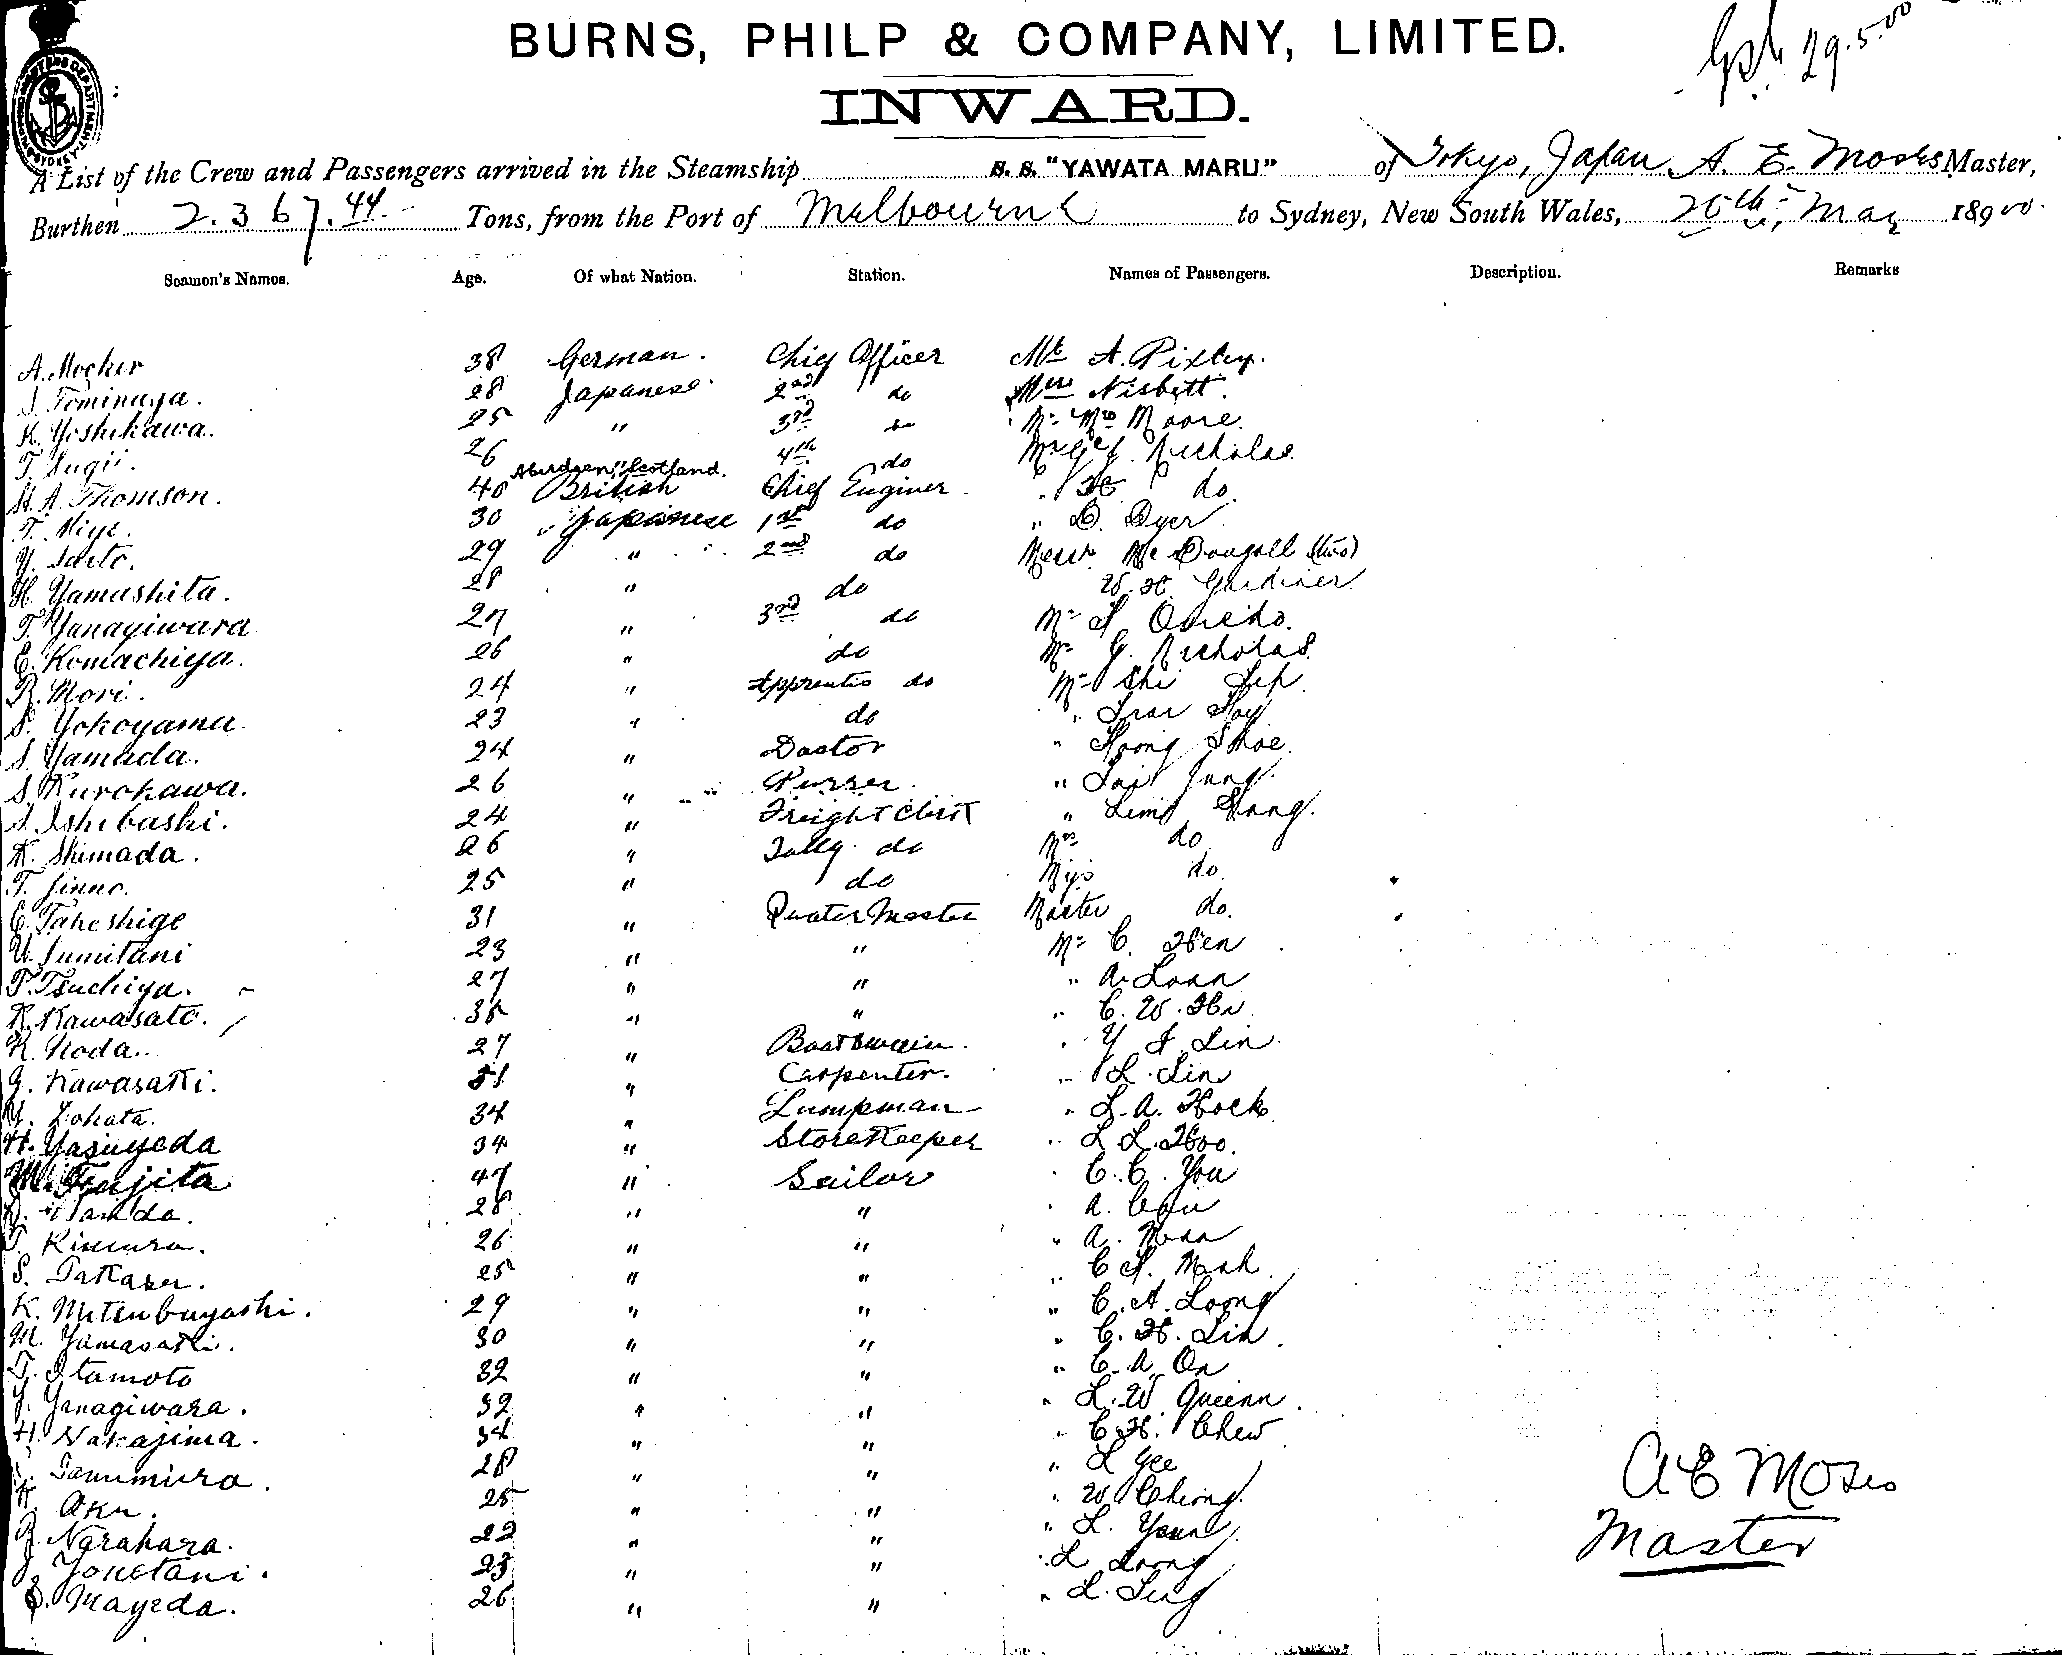 BURNS, PHILP & COMPANY, LIMITED.
29.5.00
INWARD.
A List of the Crew and Passengers arrived in the Steamship S. S. "YAWATA MARU" of Tokyo, Japan A. E. Moses Master,
Burthen 2.367.44 Tons, from the Port of Melbourne to Sydney, New South Wales, May 1900.
Seamen's Names. Age. Of what Nation. Station. Names of Passengers. Description. Remarks
A. Mocker 38 German. Chief Officer Mr A. Pixley.
Tominaga. 28 Japanese. 2nd do Nisbett.
K. Yoshikawa. 25 " 3rd do Mr Mrs Moore.
T. Sugii. 26 " 4th do Nicholas
Aberdeen, Scotland.
A. Thomson. 40 British Chief Enginer " H do.
T. Miye. 30 Japanese 1st do " D. Dyer
Y. Saito. 29 " 2nd do Messrs McDougall (two)
H. Yamashita. 28 " do W. H. Gardiner
T. Yanagiwara 27 " 3rd do Mr S.
E. Komachiya. 26 " do Mr G. Nicholas.
R. Mori. 24 " Apprentis do Mr Shi
S. Yokoyama 23 " do "
S. Yamada. 24 " Doctor "
S. Kurokawa. 26 " Purser. "
S. Ishibashi. 24 " Freight Clerk "
K. Shimada. 26 " Tally do Mrs do
T. Jinno. 25 " do Miss do.
C. Takeshige 31 " Quater Master Master do.
U. Sumitani 23 " " Mr C. Hen
T. Tsuchiya. 27 " " " A. Loan
K. Kawasato. 35 " " " C. W.
K. Noda. 27 " Boatswain. " Lin
G. Kawasaki. 51 " Carpenter. " L. Lin
Y. Sokata. 34 " Lumpman " L. A. Hock
H. Yasuyeda 34 " StoreKeeper " L. L. Hoo.
M. Fujita 47 " Sailor " C. C. You
Hamda. 28 " " " A.
Kimura. 26 " " " A.
S. Takasu. 25 " " " C. S. Mah
K. Mitsubayashi. 29 " " " C. A. Loong
M. Yamasaki. 30 " " " C. H. Lin.
T. Itamoto 32 " " " C. A. On
Y. Yanagiwara. 32 " " " L. W. Queenn.
H. Nakajima. 34 " " " C. H. Chew
Tanimura. 28 " " " L Gee
K. Aku. 25 " " " W Chong.
Narahara. 22 " " " L. Youn
Yonetani. 23 " " " L Loong
Mayeda. 26 " " " L. Sing
A E Moses
Master